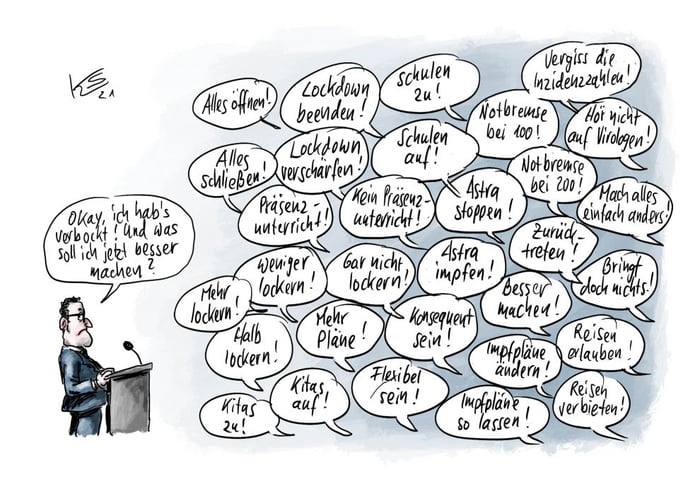 KS
21
Alles öffnen!
Lockdown
beenden!
Schulen
zu!
Vergiss die
Inzidenzzahlen!
Notbremse
bei 100!
Hör nicht
auf Virologen!
Alles
schließen!
Lockdown
verschärfen!
Schulen
auf!
Notbremse
bei 200!
Mach alles
einfach anders!
Präsenz-
unterricht!
Kein Präsenz-
unterricht!
Astra
stoppen!
Zurück-
treten!
Okay, ich hab's
verbockt! Und was
soll ich jetzt besser
machen?
Mehr
lockern!
Weniger
lockern!
Gar nicht
lockern!
Astra
impfen!
Besser
machen!
Bringt
doch nichts!
Halb
lockern!
Mehr
Pläne!
Konsequent
sein!
Impfpläne
ändern!
Reisen
erlauben!
Kitas
zu!
Kitas
auf!
Flexibel
sein!
Impfpläne
so lassen!
Reisen
verbieten!